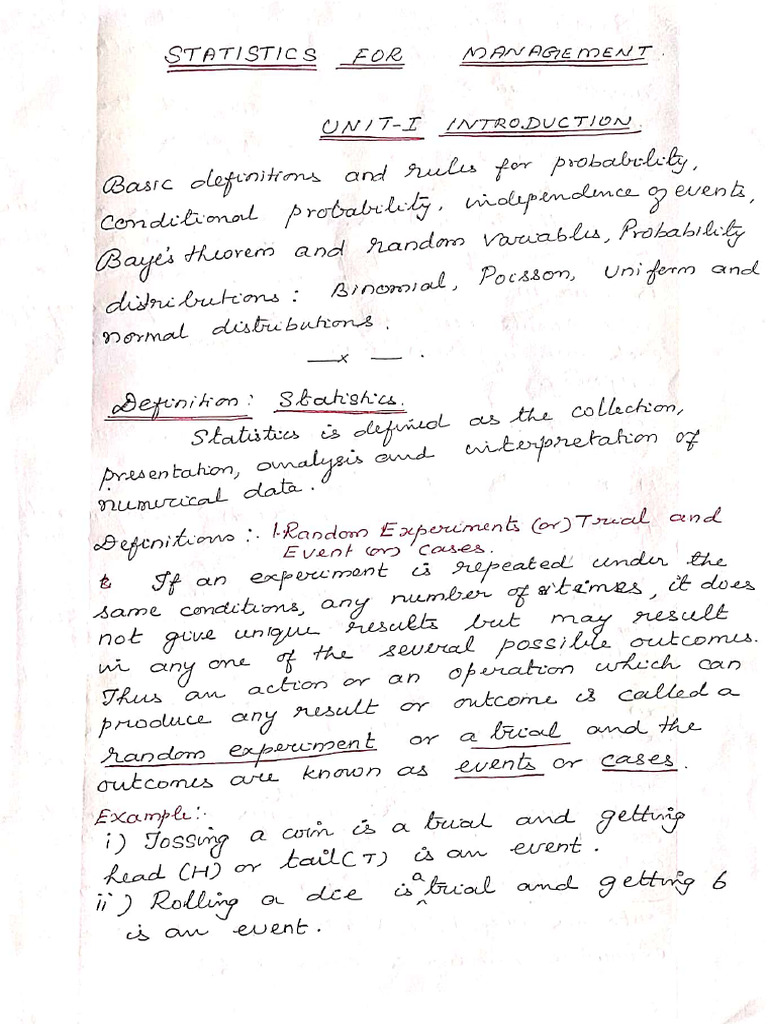 STATISTICS FOR MANAGEMENT.
UNIT-I INTRODUCTION.
Basic definitions and rules for probability,
Conditional probability, independence of events,
Baye's theorem and random variables, Probability
distributions: Binomial, Poisson, Uniform and
normal distributions.
—x—.
Definition: Statistics.
Statistics is defined as the collection,
presentation, analysis and interpretation of
numerical data.
Definitions:- 1. Random Experiments (or) Trial and
Event (or) cases.
If an experiment is repeated under the
same conditions, any number of times, it does
not give unique results but may result
in any one of the several possible outcomes.
Thus an action or an operation which can
produce any result or outcome is called a
random experiment or a trial and the
outcomes are known as events or cases.
Example:-
i) Tossing a coin is a trial and getting
head (H) or tail (T) is an event.
ii) Rolling a dce is a trial and getting 6
is an event.